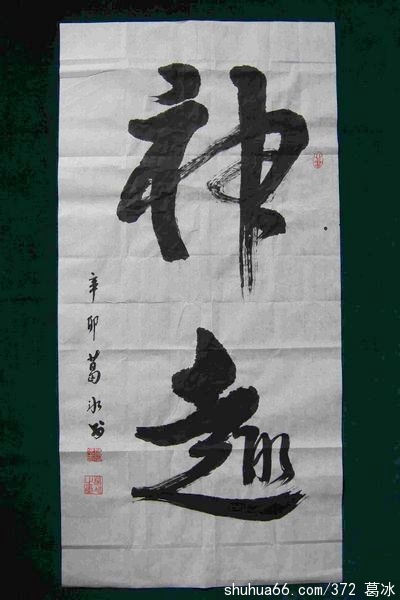 神趣
辛卯葛冰书
shuhua66.com/372 葛冰